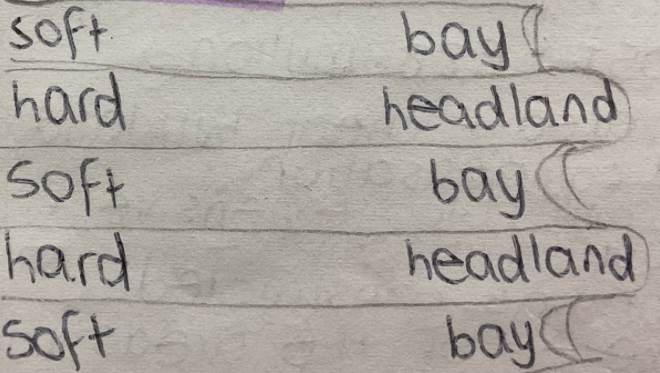 soft bay
hard headland
soft bay
hard headland
soft bay